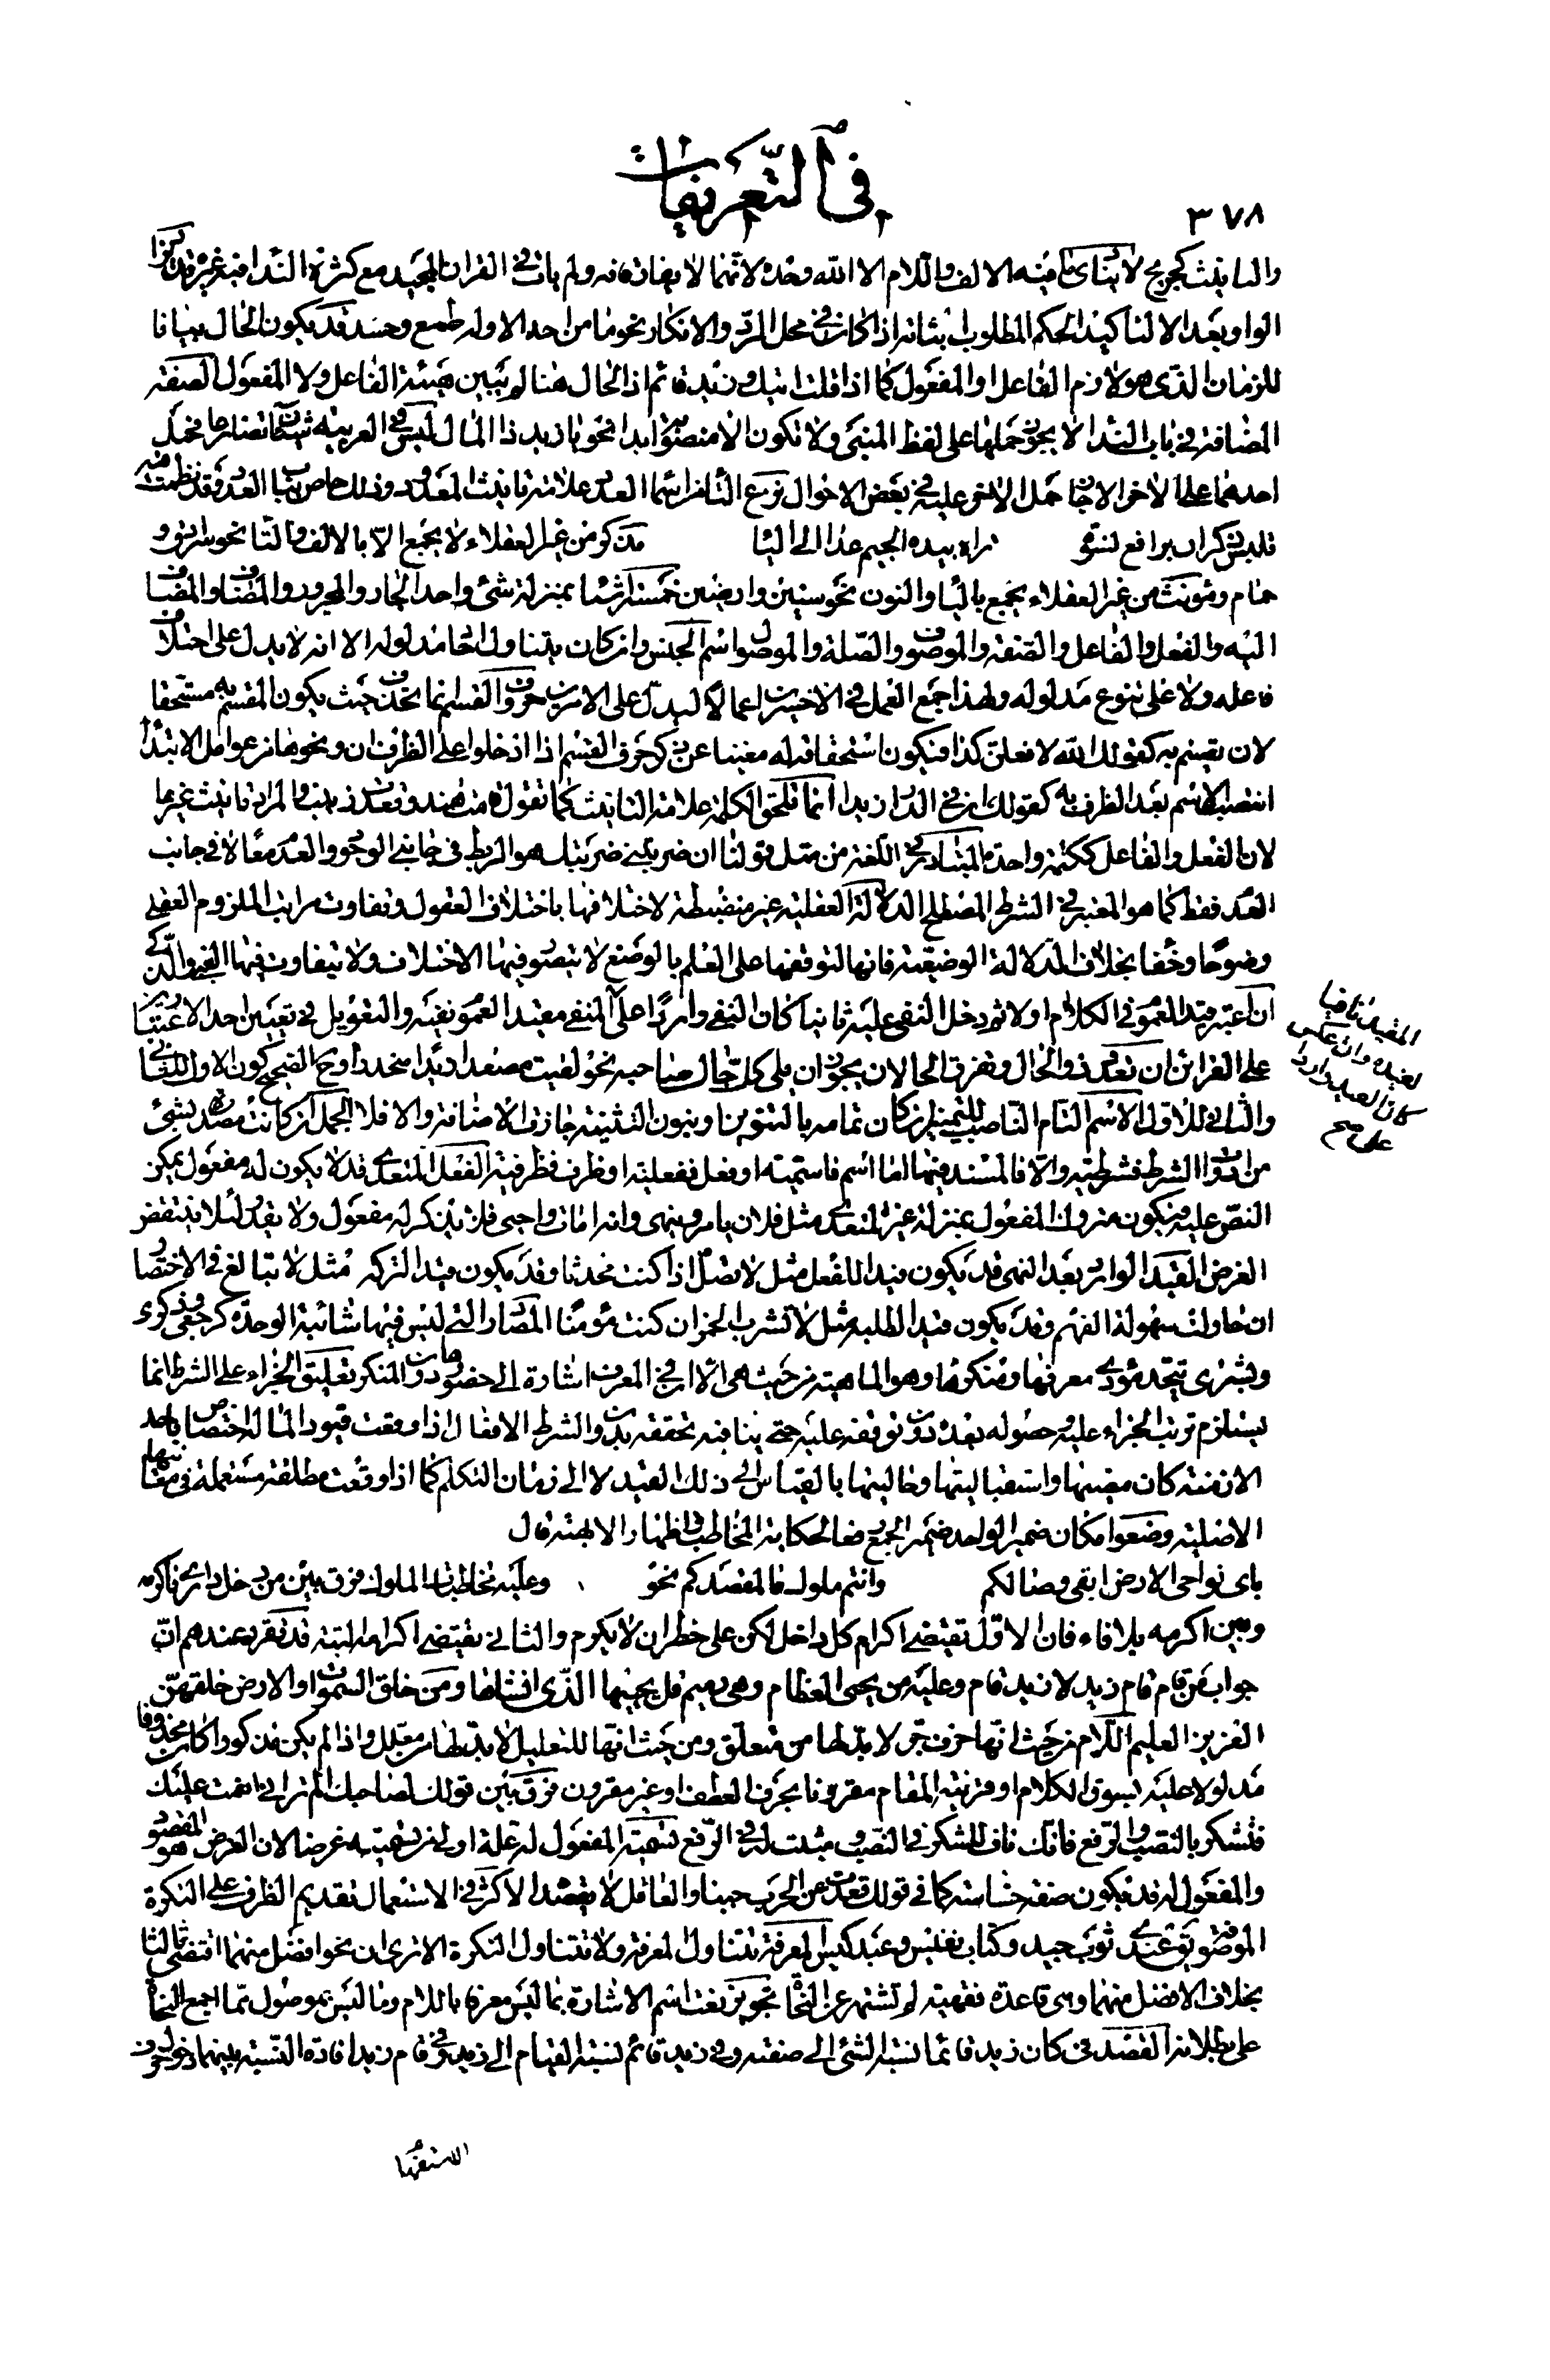 في التعريفات
٣٧٨
والتانيث كجريح لا ينادى ما فيه الالف واللام الا الله وحده لانهما لا يفارقانه ولم يات في القران المجيد مع كثرة النداء فيه غيره قد
الواو بعد الا لتاكيد الحكم المطلوب اثباته اذا كان في محل الرد والانكار نحو ما من احد الا وله طمع وحسد قد يكون الحال بيانا
للزمان الذي هو لازم الفاعل او المفعول كما اذا قلت اتيك وزيد قائم اذ الحال هنا لم يبين هيئة الفاعل ولا المفعول الصفة
المضافة في باب النداء لا يجوز حملها على لفظ المبنى ولا تكون الا منصوبة ابدا نحو يا زيد ذا المال ليس في العربية شيئان تضارعا فحمل
احدهما على الاخر الا جاز حمل الاخر عليه في بعض الاحوال نزع التاء من اسماء العدد علامة تانيث المعدود وذلك خاص بباب العدد وقد نظمت فيه
مذكر من غير العقلاء لا يجمع الا بالالف والتاء نحو سرادق و
حمام ومؤنث من غير العقلاء يجمع بالياء والنون نحو سنين وارضين خمسة اشياء بمنزلة شئ واحد الجار والمجرور والمضاف والمضاف
اليه والفعل والفاعل والصفة والموصوف والصلة والموصول اسم الجنس وان كان يتناول احاد مدلوله الا انه لا يدل على اختلاف
فاعله ولا على تنوع مدلوله ولهذا جمع العمل في الاخسرين اعمالا ليدل على الامرين حروف القسم انما تحذف حيث يكون المقسم به مستحقا
لان يقسم به كقولك الله لافعلن كذا فيكون استحقاقه له مغنيا عن ذكر حرف القسم اذا دخلوا على الظرف ان ونحوها من عوامل الابتداء
انتصب الاسم بعد الظرف به كقولك ان في الدار زيدا انما تلحق الكلمة علامة التانيث كما تقول قامت هند وقعدت زينب والمراد تانيث غيرها
لان الفعل والفاعل ككلمة واحدة المتبادر في اللغة من مثل قولنا ان ضربتني ضربتك هو الربط في جانبي الوجود والعدم معا لا في جانب
العدم فقط كما هو المعتبر في الشرط المصطلح الدلالة العقلية غير منضبطة لاختلافها باختلاف العقول وتفاوت مراتب الملزوم العقلي
وضوحا وخفاء بخلاف الدلالة الوضعية فانها لتوقفها على العلم بالوضع لا يتصور فيها الاختلاف ولا يتفاوت فيها الغبي والذكي
ان اعتبر قيد العموم في الكلام اولا ثم دخل النفي عليه ثانيا كان النفي واردا على المنفي مقيد العموم نفيه والتعويل في تعيين احد الاعتبارين
على القرائن ان تعدد ذو الحال وتفرق الحالان يجوز ان يلي كل حال صاحبه نحو لقيت مصعدا زيدا منحدرا والصحيح كون الاول للثاني
والثاني للاول الاسم التام الناصب للتمييز ان كان تمامه بالتنوين او بنون التثنية جازت الاضافة والا فلا الجمل ان كانت مصدرة بشئ
من ادوات الشرط فشرطية والا فالمسند فيها اما اسم فاسمية او فعل ففعلية او ظرف فظرفية الفعل المتعدي قد لا يكون له مفعول يمكن
النص عليه فيكون متروك المفعول بمنزلة غير المتعدي مثل فلان يامر وينهى وانه امات واحيى فلا يذكر له مفعول ولا يقدر لئلا ينتقض
الغرض القيد الوارد بعد النهي قد يكون قيدا للفعل مثل لا تصل اذا كنت محدثا وقد يكون قيدا لتركه مثل لا تبالغ في الاختصار
ان حاولت سهولة الفهم وقد يكون قيدا لطلبه مثل لا تشرب الخمر ان كنت مؤمنا المصادر التي ليس فيها شائبة الوحدة كرجعى وذكرى
وبشرى يتحد مؤدى معرفها ومنكرها وهو الماهية من حيث هي الا ان في المعرف اشارة الى حضورها دون المنكر تعليق الجزاء على الشرط انما
يستلزم ترتب الجزاء عليه وحصوله بعده دون توقفه عليه حتى ينافيه تحققه بدون الشرط الافعال اذا وقعت قيودا لما له اختصاص باحد
الازمنة كان مضيها واستقباليتها وحاليتها بالقياس الى ذلك القيد لا الى زمان التكلم كما اذا وقعت مطلقة مستعملة في معانيها
الاصلية وضعوا مكان ضمير الواحد ضمير الجمع رفعا لحكاية المخاطب واظهارا لابهته قال
باى نواحي الارض ابغى وصالكم وانتم ملوك ما لمقصدكم نحو وعليه مخاطبات الملوك فرق بين من دخل داري فاكرمه
وبين اكرمه بلا فاء فان الاول يقتضي اكرام كل داخل لكن على خطر ان لا يكرم والثاني يقتضي اكرامه البتة قد تقرر عندهم ان
جواب من قام قام زيد لا زيد قام وعليه من يحيى العظام وهي رميم قل يحييها الذي انشاها ومن خلق السموات والارض خلقهن
العزيز العليم اللام من حيث انها حرف جر لا بد لها من متعلق ومن حيث انها للتعليل لا بد لها من معلل واذا لم يكن مذكورا كان محذوفا
مدلولا عليه بسوق الكلام او قرينة المقام مقرونا بحرف العطف او غير مقرون فرق بين قولك لصاحبك الم تر اني انعمت عليك
فتشكر بالنصب والرفع فانك ناف للشكر في النصب ومثبت له في الرفع تسمية المفعول له علة اولى من تسميته غرضا لان الغرض هو المقصود
والمفعول له قد يكون صفة خسيسة كما في قولك قعدت عن الحرب جبنا والعاقل لا يقصد الاكثر في الاستعمال تقديم الظرف على النكرة
الموصوفة يقوى عندي ثوب جيد وكتاب نفيس وعبد كيس المعرفة تتناول المعرفة ولا تتناول النكرة الا ترى ان نحو افضل منهما اقتضى ثالثا
بخلاف الافضل منهما وهي قاعدة فقهية لم تشتهر عن النحاة تجويز نعت اسم الاشارة بما ليس معرفا باللام وما ليس بموصول مما اجمع النحاة
على بطلانه القصد في كان زيد قائما نسبة الشئ الى صفته وفي زيد قائم نسبة القيام الى زيد وفي قام زيد افادة النسبة بينهما دخول حرف
الاستفهام
كان القيد واردا
على صح